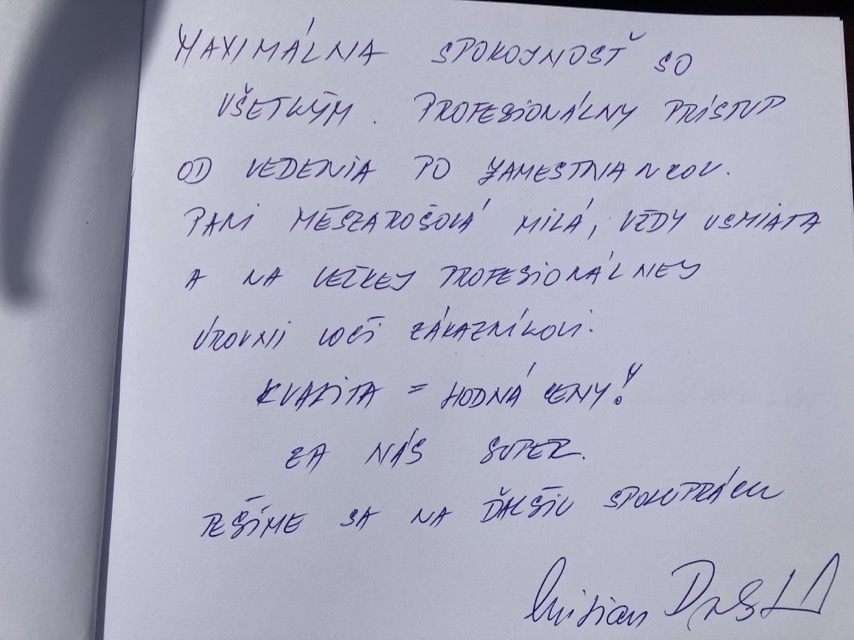 MAXIMÁLNA SPOKOJNOSŤ SO
VŠETKÝM. PROFESIONÁLNY PRÍSTUP
OD VEDENIA PO ZAMESTNANCOV.
PANI MÉSZAROŠOVÁ MILÁ, VŽDY USMIATA
A NA VEĽKEJ PROFESIONÁLNEJ
ÚROVNI VOČI ZÁKAZNÍKOVI.
KVALITA = HODNÁ CENY!
ZA NÁS SUPER.
TEŠÍME SA NA ĎALŠIU SPOLUPRÁCU